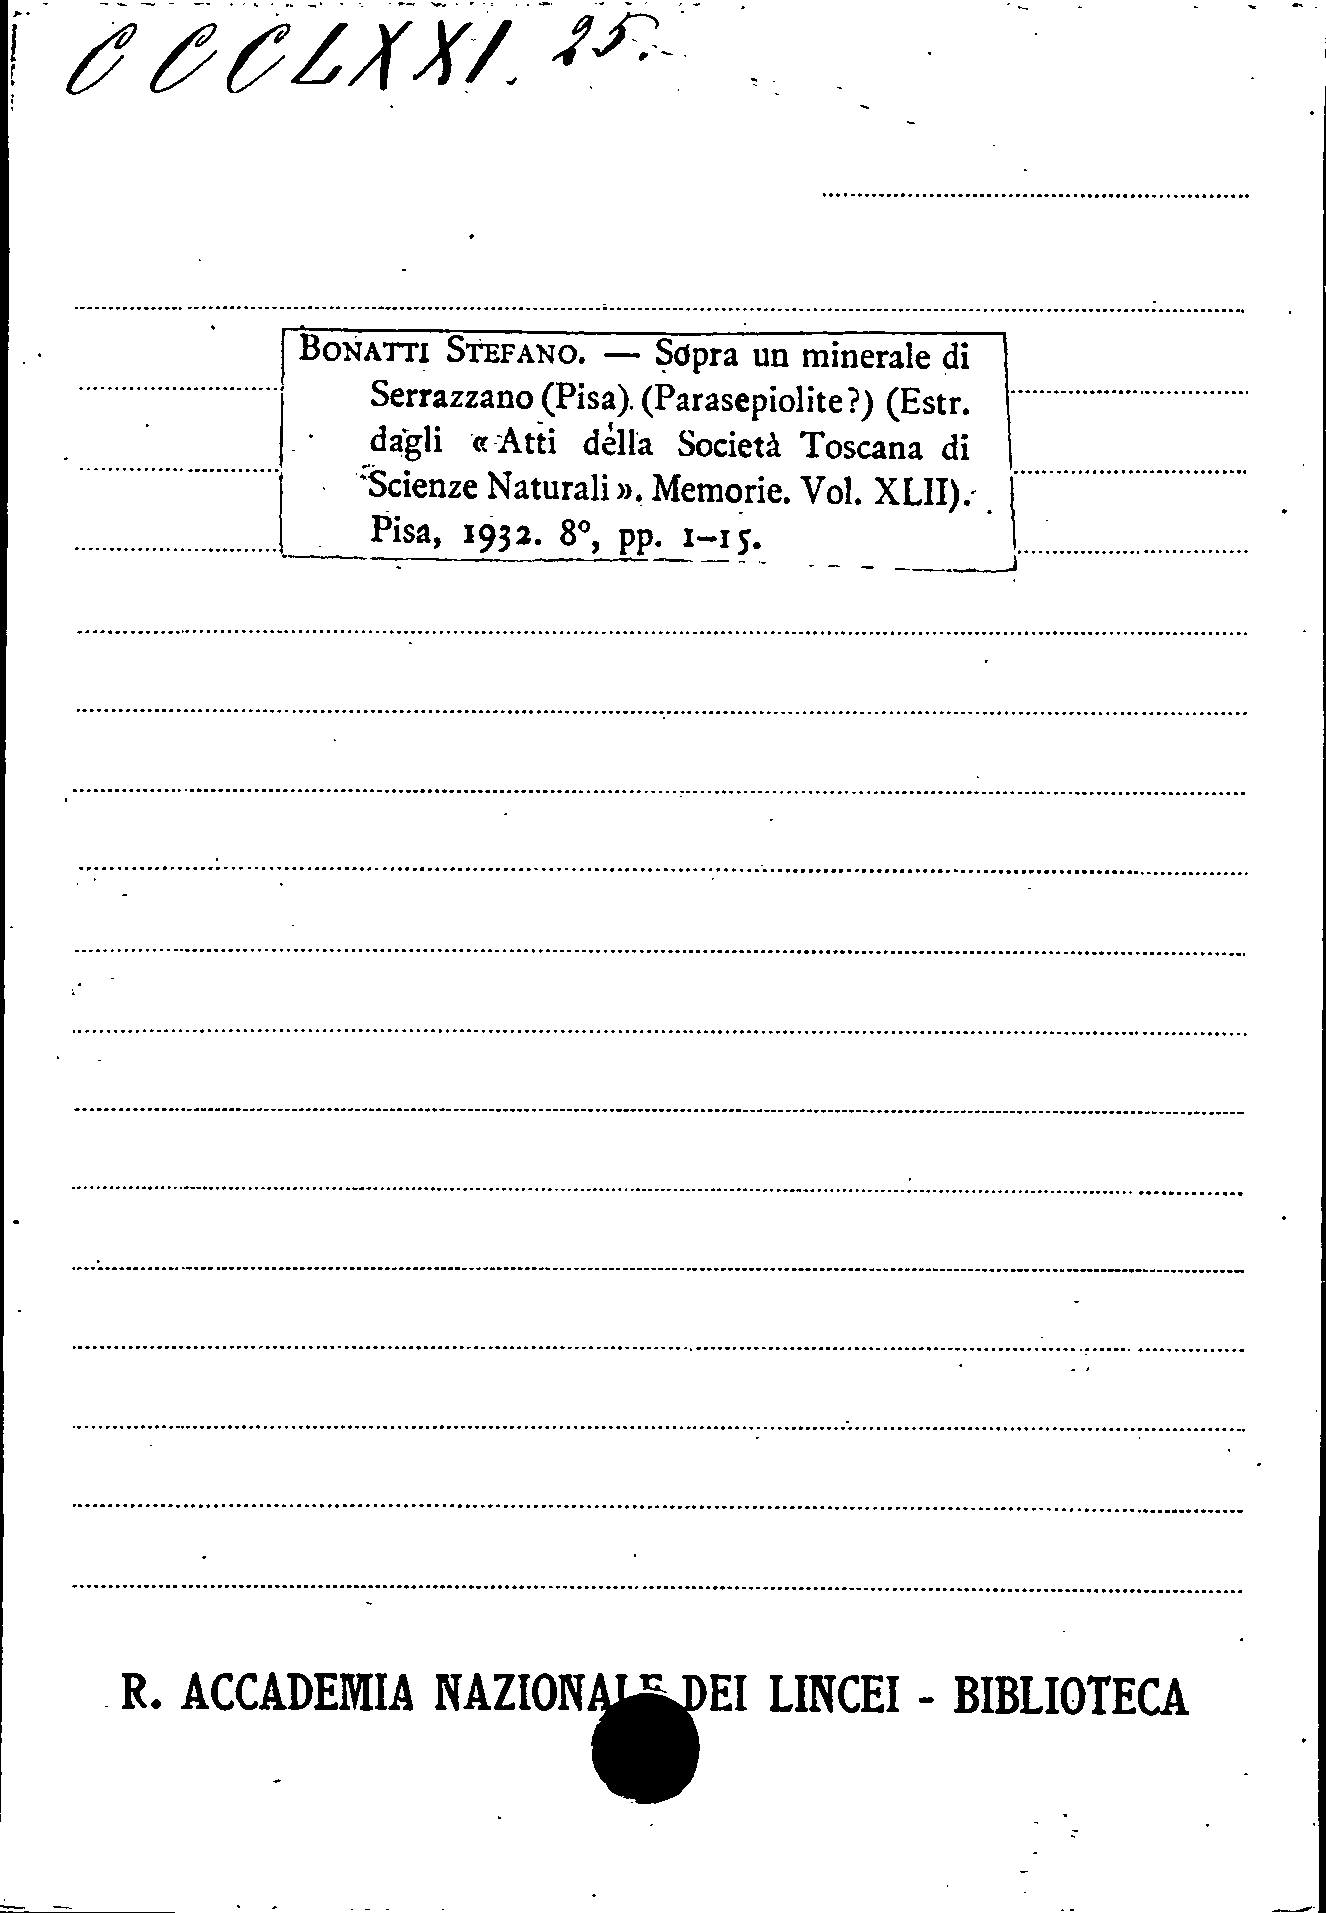 CCCLXXI. 25.
BONATTI STEFANO. — Sopra un minerale di
Serrazzano (Pisa). (Parasepiolite?) (Estr.
dagli « Atti della Società Toscana di
Scienze Naturali ». Memorie. Vol. XLII).
Pisa, 1932. 8º, pp. 1-15.
R. ACCADEMIA NAZIONALE DEI LINCEI - BIBLIOTECA